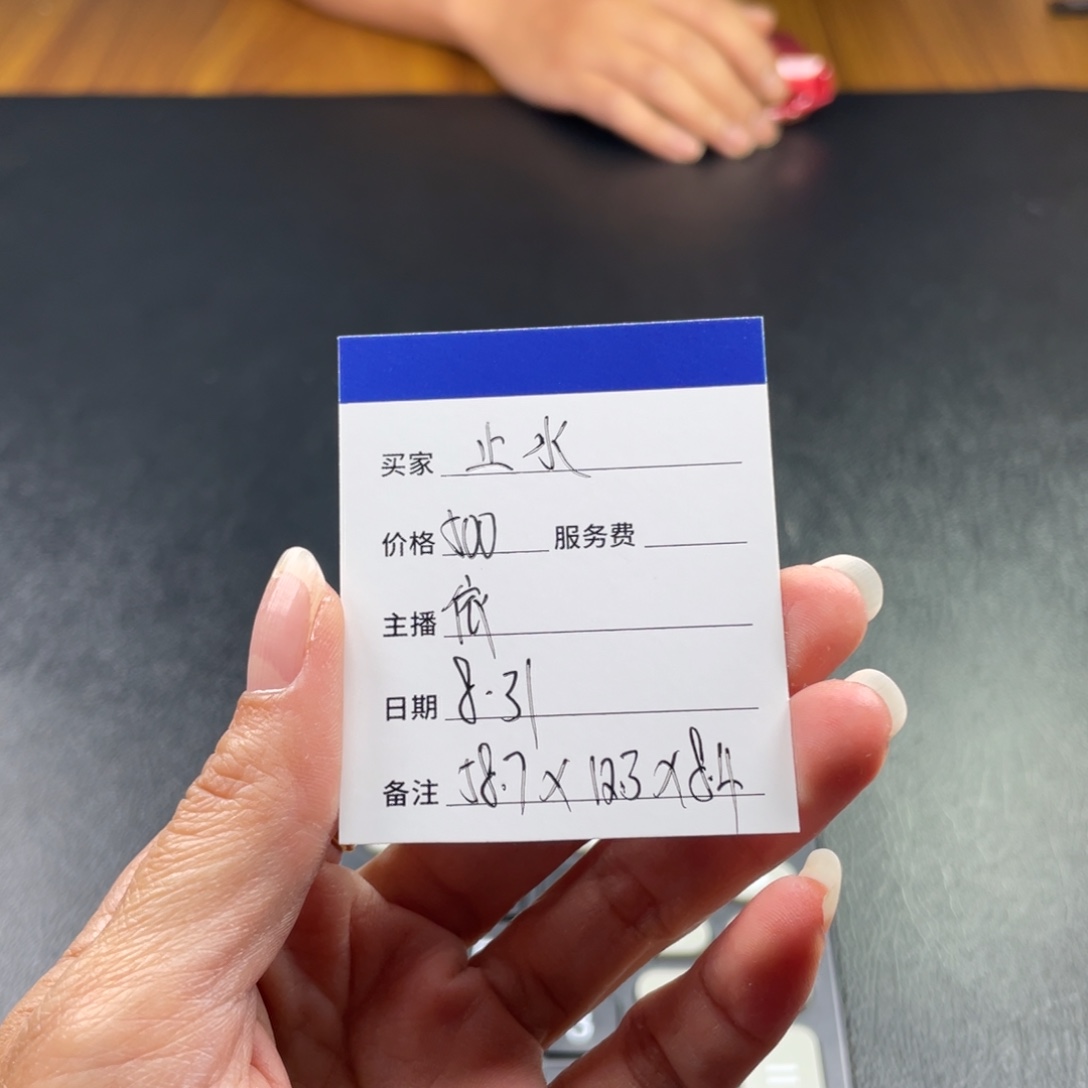 买家 止水
价格 500 服务费
主播 依
日期 8.31
备注 58.7×12.3×8.4